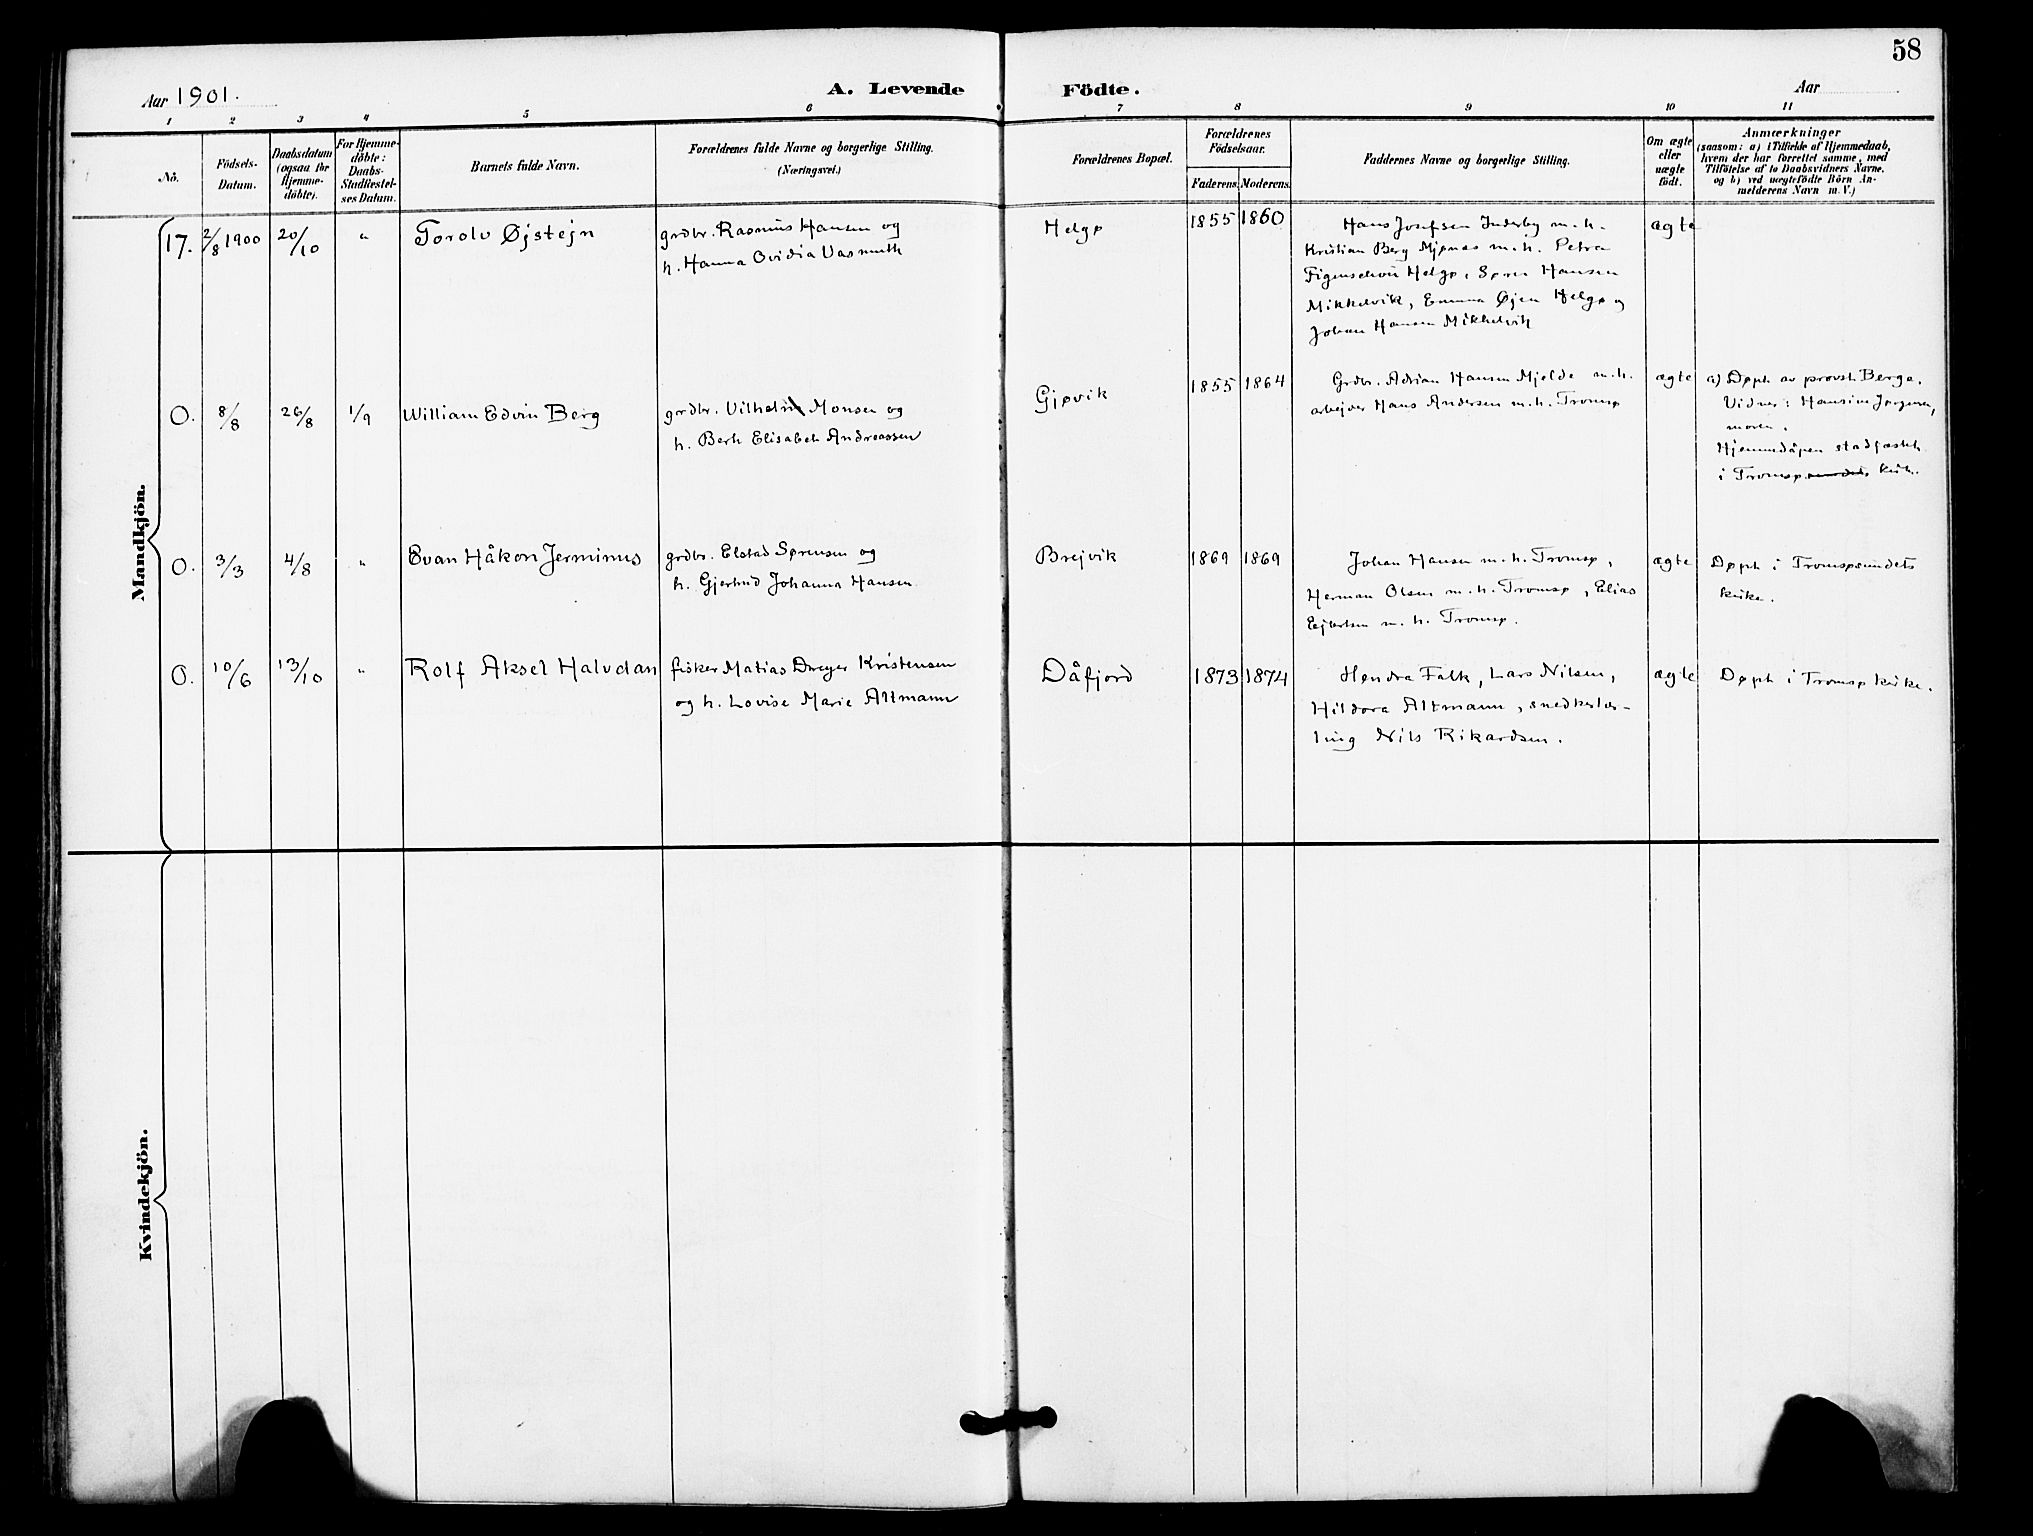 58
Aar 1901.
A. Levende Födte.
Aar
1 2 3 4 5 6 7 8 9 10 11
No.
Födsels-
Datum.
Daabsdatum
(ogsaa for
Hjemme-
döbte).
For Hjemme-
döbte:
Daabs-
Stadfæstel-
ses Datum.
Barnets fulde Navn.
Forældrenes fulde Navne og borgerlige Stilling.
(Næringsvei.)
Forældrenes Bopæl.
Forældrenes
Födselsaar.
Faderens. Moderens.
Faddernes Navne og borgerlige Stilling.
Om ægte
eller
uægte
födt.
Anmærkninger
(saasom: a) i Tilfælde af Hjemmedaab,
hvem der har forrettet samme, med
Tilföielse af to Daabsvidners Navne.
og b) ved uægtefödte Börn An-
melderens Navn m. V.)
Mandkjön.
17. 2/8 1900 20/10 " Torolv Øjstejn
grdbr. Rasmus Hansen og
h. Hanna Ovidia Vasmuth
Helgø
1855 1860
Hans Josefsen Inderby m. h.
Kristian Berg Mjønes m. h. Petra
Figenschou Helgø, Søren Hansen
Mikkelvik, Emma Øjen Helgø og
Johan Hansen Mikkelvik
ægte
O. 8/8 26/8 1/9 William Edvin Berg
grdbr. Vilhelm Monsen og
h. Berh Elisabeh Andreassen
Gjøvik
1855 1864
Grdbr. Adrian Hansen Mjelde m. h.
arbejder Hans Andersen m. h. Tromsø
ægte
a) Døpt av provst Berge.
Vidner: Hansine Jørgensen,
moren.
Hjemmedåpen stadfæstet
i Tromsøsundets kirke.
O. 3/3 4/8 " Evan Håkon Jerminus
grdbr. Elstad Sørensen og
h. Gjertrud Johanna Hansen
Brejvik
1869 1869
Johan Hansen m. h. Tromsø,
Herman Olsen m. h. Tromsø, Elias
Ejlertsen m. h. Tromsø.
ægte
Døpt i Tromsøsundets
kirke.
O. 10/6 13/10 " Rolf Aksel Halvdan
fisker Matias Dreyer Kristensen
og h. Lovise Marie Altmann
Dåfjord
1873 1874
Hendra Falk, Lars Nilsen,
Hildora Altmann, snedkerlær-
ling Nils Rikardsen.
ægte
Døpt i Tromsø kirke.
Kvindekjön.